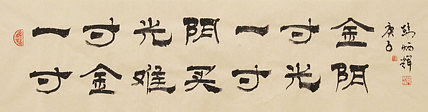 一寸光阴一寸金
寸金难买寸光阴
庚子